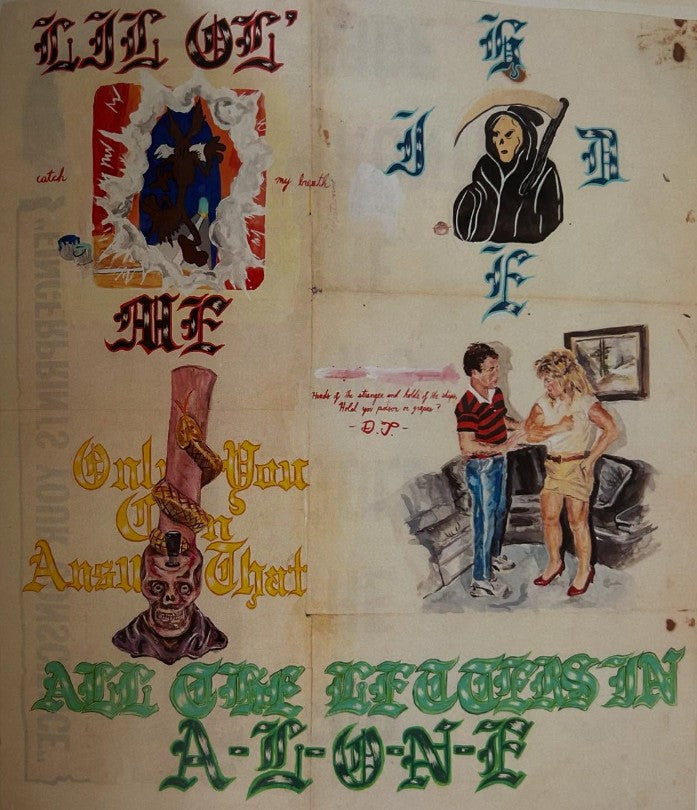 LIL OL'
catch my breath
ME
H
I D
E
Hands of the stranger and holds of the ships,
Hold you poison or grapes?
- D.T. -
Only You
Can
Answer That
ALL THE LETTERS IN
A-L-O-N-E